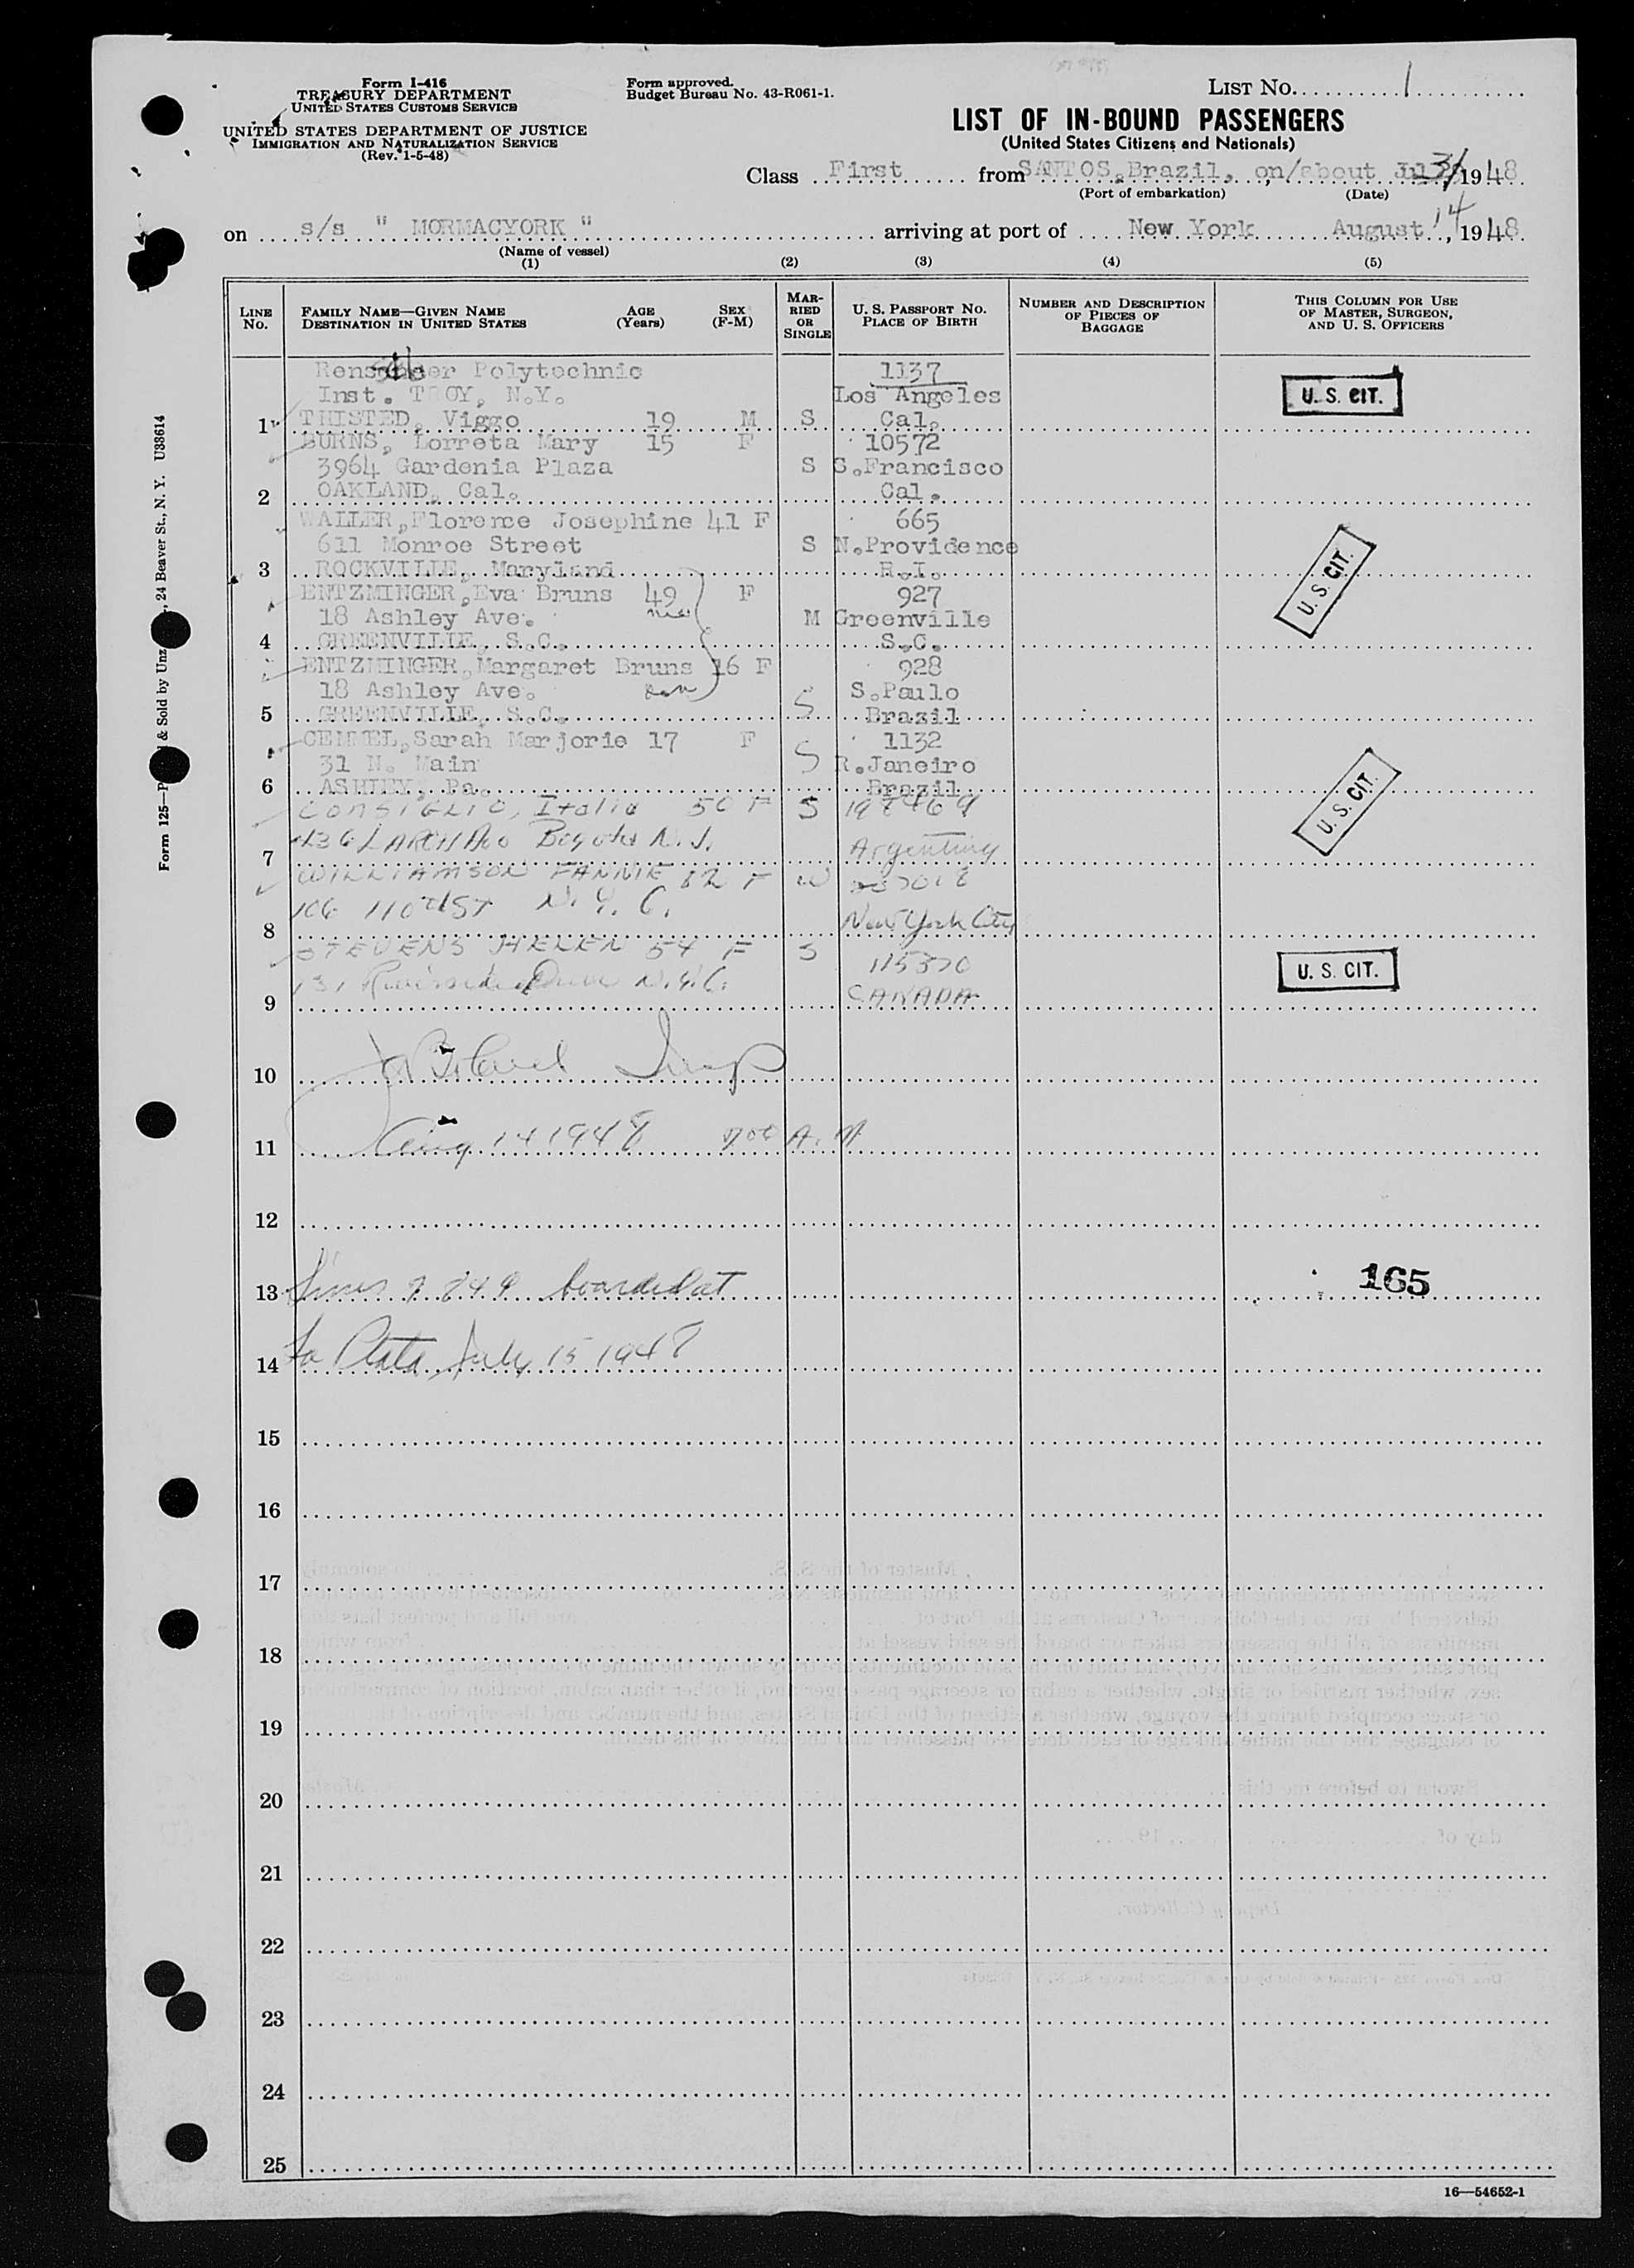 Form I-416
TREASURY DEPARTMENT
UNITED STATES CUSTOMS SERVICE
UNITED STATES DEPARTMENT OF JUSTICE
IMMIGRATION AND NATURALIZATION SERVICE
(Rev. 1-5-48)
Form approved.
Budget Bureau No. 43-R061-1.
LIST No. 1
LIST OF IN-BOUND PASSENGERS
(United States Citizens and Nationals)
Class First from SANTOS, Brazil, on/about 31, 1948
(Port of embarkation) (Date)
on s/s " MORMACYORK " arriving at port of New York August 14, 1948
(Name of vessel)
(1) (2) (3) (4) (5)
LINE No.
FAMILY NAME—GIVEN NAME
DESTINATION IN UNITED STATES
AGE (Years)
SEX (F-M)
MARRIED OR SINGLE
U. S. PASSPORT No.
PLACE OF BIRTH
NUMBER AND DESCRIPTION OF PIECES OF BAGGAGE
THIS COLUMN FOR USE OF MASTER, SURGEON, AND U. S. OFFICERS
Polytechnic 1137
Inst. TROY, N.Y. Los Angeles U. S. CIT.
1 THISTED, Viggo 19 M S Cal.
BURNS, Lorreta Mary 15 F 10572
3964 Gardenia Plaza S S.Francisco
2 OAKLAND, Cal. Cal.
WALLER, Florence Josephine 41 F 665
611 Monroe Street S N.Providence
3 ROCKVILLE, Maryland R.I. U. S. CIT.
ENTZMINGER, Eva Bruns 49 F 927
18 Ashley Ave. M Greenville
4 GREENVILLE, S.C. S.C.
ENTZMINGER, Margaret Bruns 16 F 928
18 Ashley Ave. S.Paulo
5 GREENVILLE, S.C. S Brazil
CEMMEL, Sarah Marjorie 17 F 1132
31 N. Main S R.Janeiro
6 ASHLEY, Pa. Brazil U. S. CIT.
CONSIGLIO, Italia 50 F S 198469
436 LARCH Ave Bogota N.J.
7 Argentina
WILLIAMSON FANNIE 82 F W
106 110th ST N.Y.C.
8 New York City
STEVENS HELEN 54 F S 115370 U. S. CIT.
131 Riverside Drive N.Y.C.
9 CANADA
10 Insp
11 Aug 14 1948 700 A. M
12
13 Lines 7 8 & 9 boarded at 165
14 La Plata, July 15 1948
15
16
17
18
19
20
21
22
23
24
25
16—54652-1
Form 125—P & Sold by Unz , 24 Beaver St., N. Y. U33614